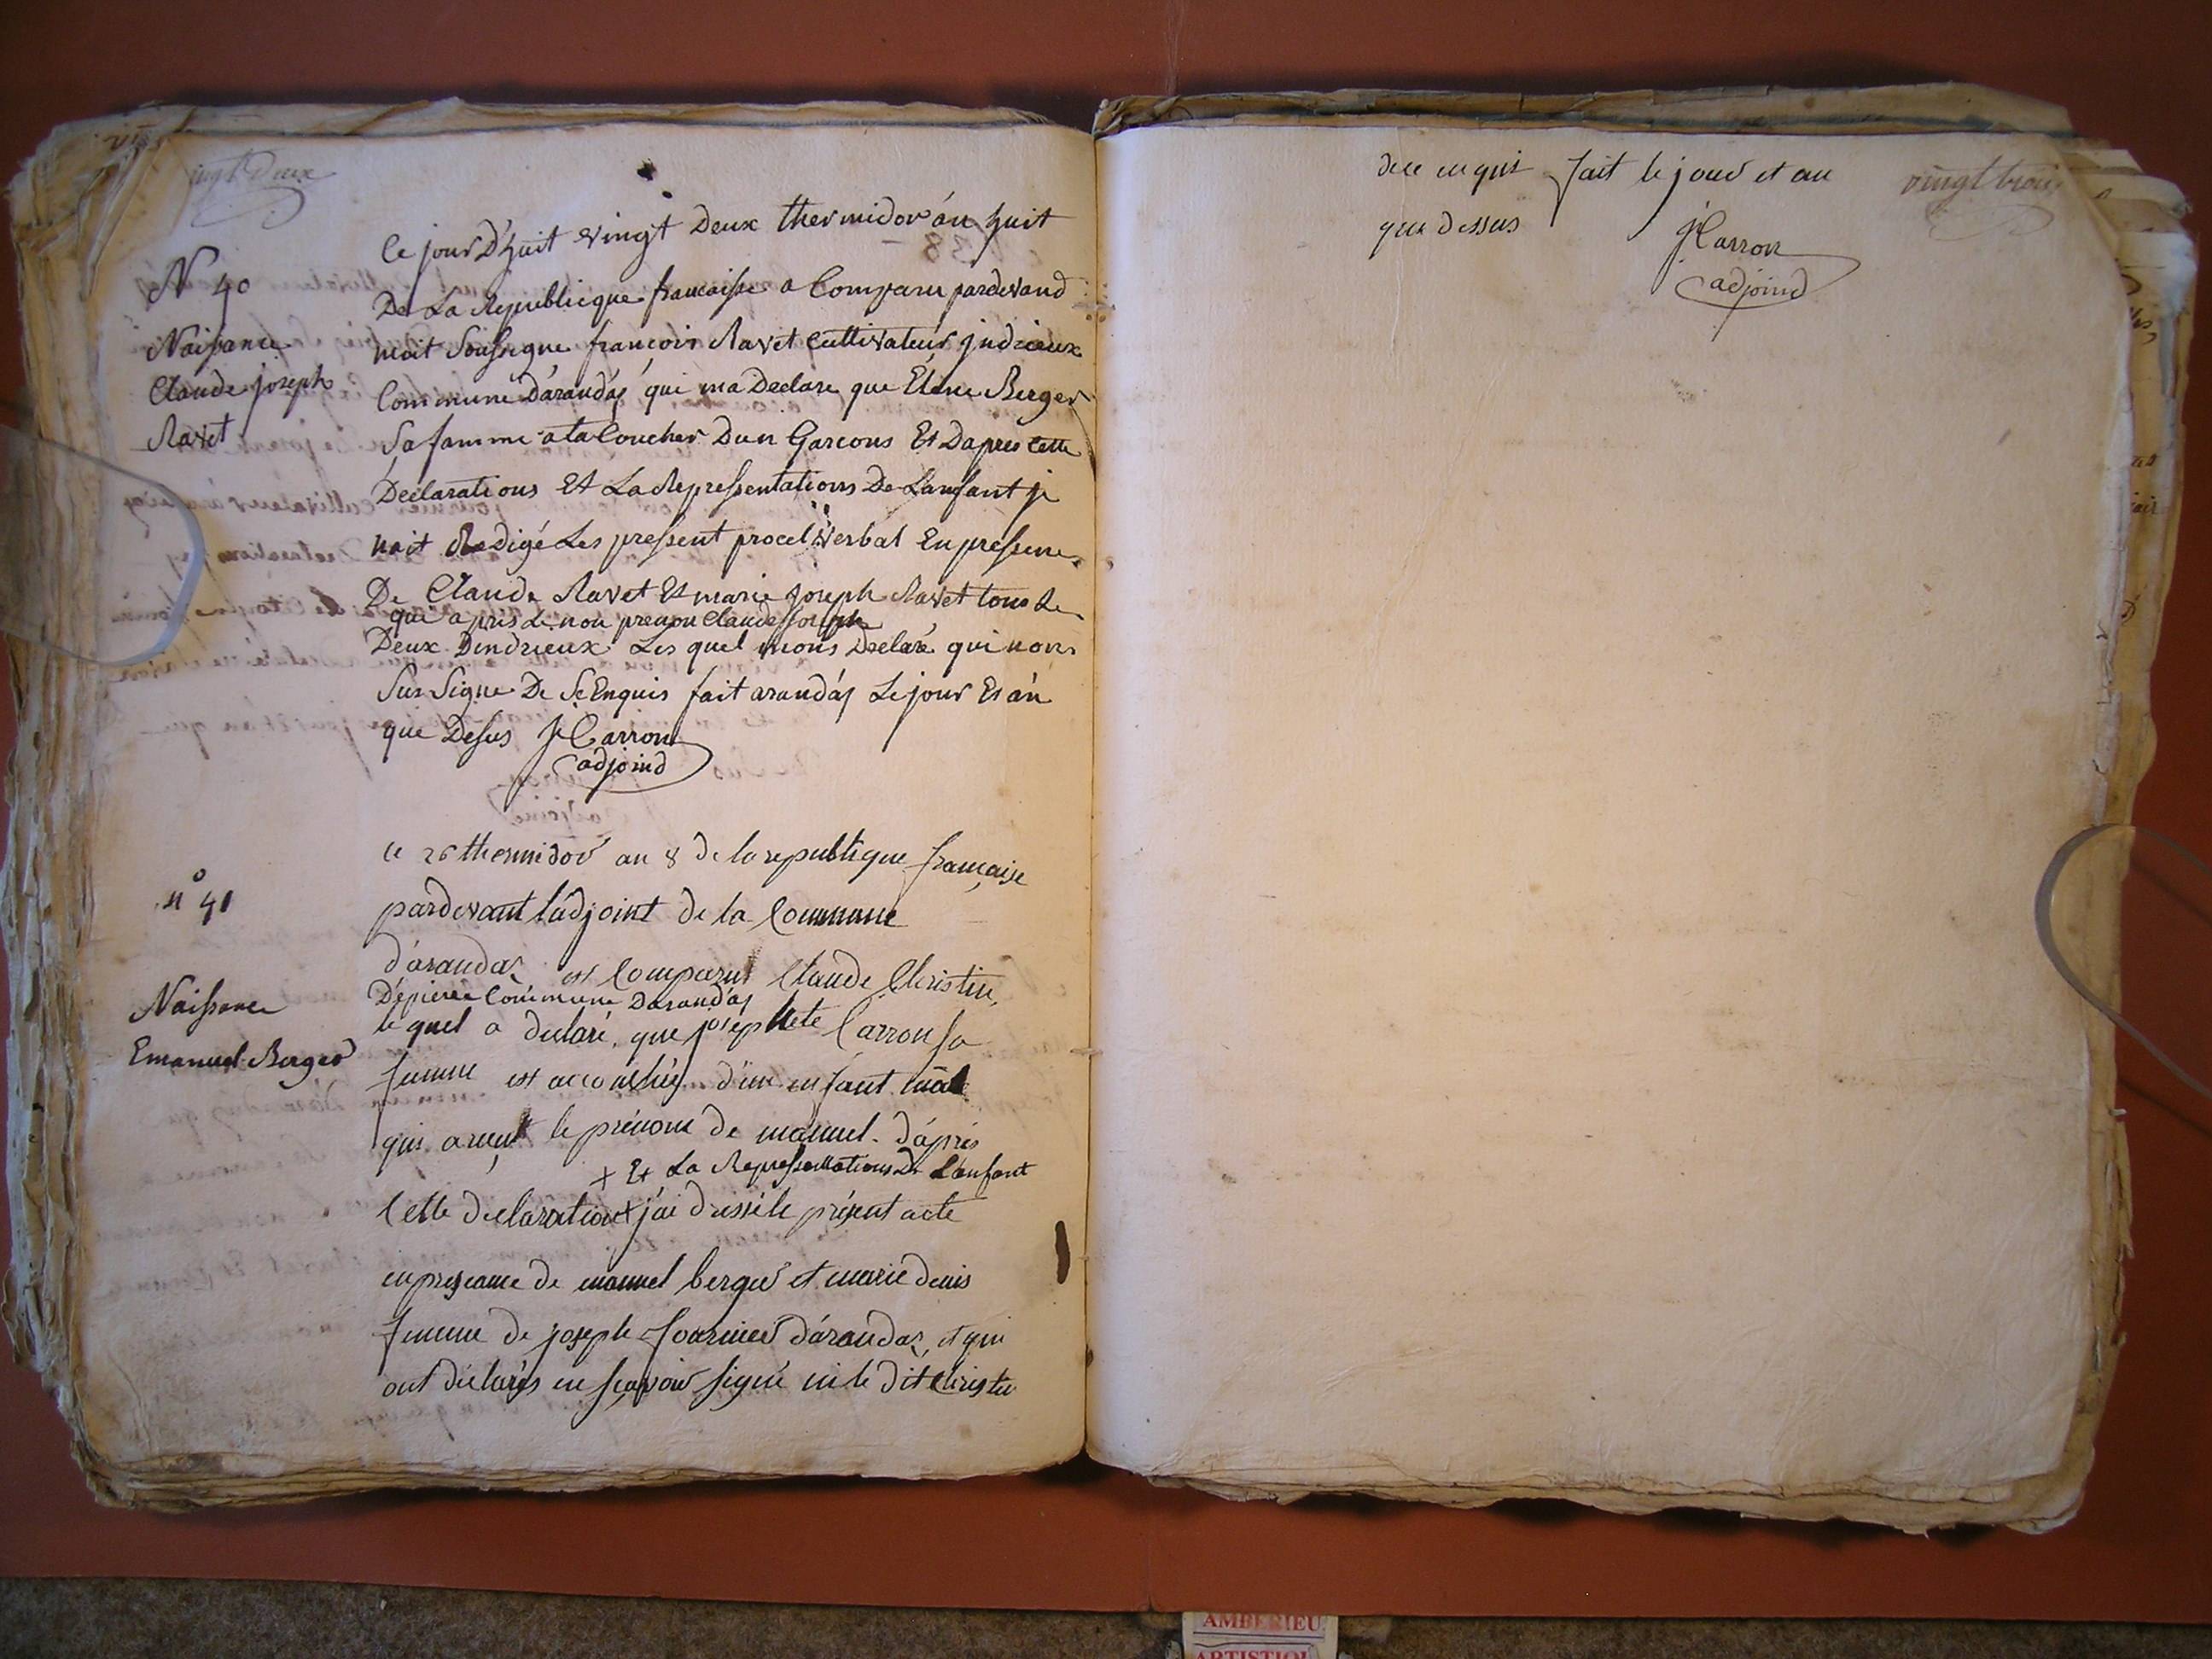 vingt Deux
N 40
Naissance
Claude joseph
Ravet
Ce jour D'huit vingt Deux thermidor án huit
De La Republicque francaisse a Comparu pardevand
moit Soussigne francoir Ravet Cultivateur jndrieux
Commune D'arandas qui ma Declare que Eléne Berger
Sa famme ata Coucher Dun Garcons Et Dapres cette
Déclarations Et La Repressentations De Lanfant je
nait Redigé Les pressent procel Verbal En pressence
De Claude Ravet Et marie Joseph Ravet tous Le
que apris Le non prenon Claude Joseph
Deux Dindrieux Les quel mons Declaré qui non
Sus Signe De Se Enquis fait arandas Le jour Et án
que Desus JCarron
adjoind
n° 41
Naissance
Emanuel Berger
le 26 thermidor an 8 de la republique française
pardevant l'adjoint de la Commune
d'arandas est Comparut Claude Christin,
D'epierre Commune Darandas
le quel a declaré, que josephete Carron sa
femme est accouchés d'un enfant mâle
qui a reçut le prénom de manuel. d'aprés
+ Et La Repressentations De L'anfant
Cette declaration + j'ai dressé le présent acte
en preseance de manuel berger et marie denis
femme de joseph fournier d'arandas, et qui
ont déclarés ne sçavoir signé ni le dit Christin
de ce enquis fait le jour et an
que dessus
JCarron
adjoind
vingt trois
AMBERIEU
ARTISTIQU